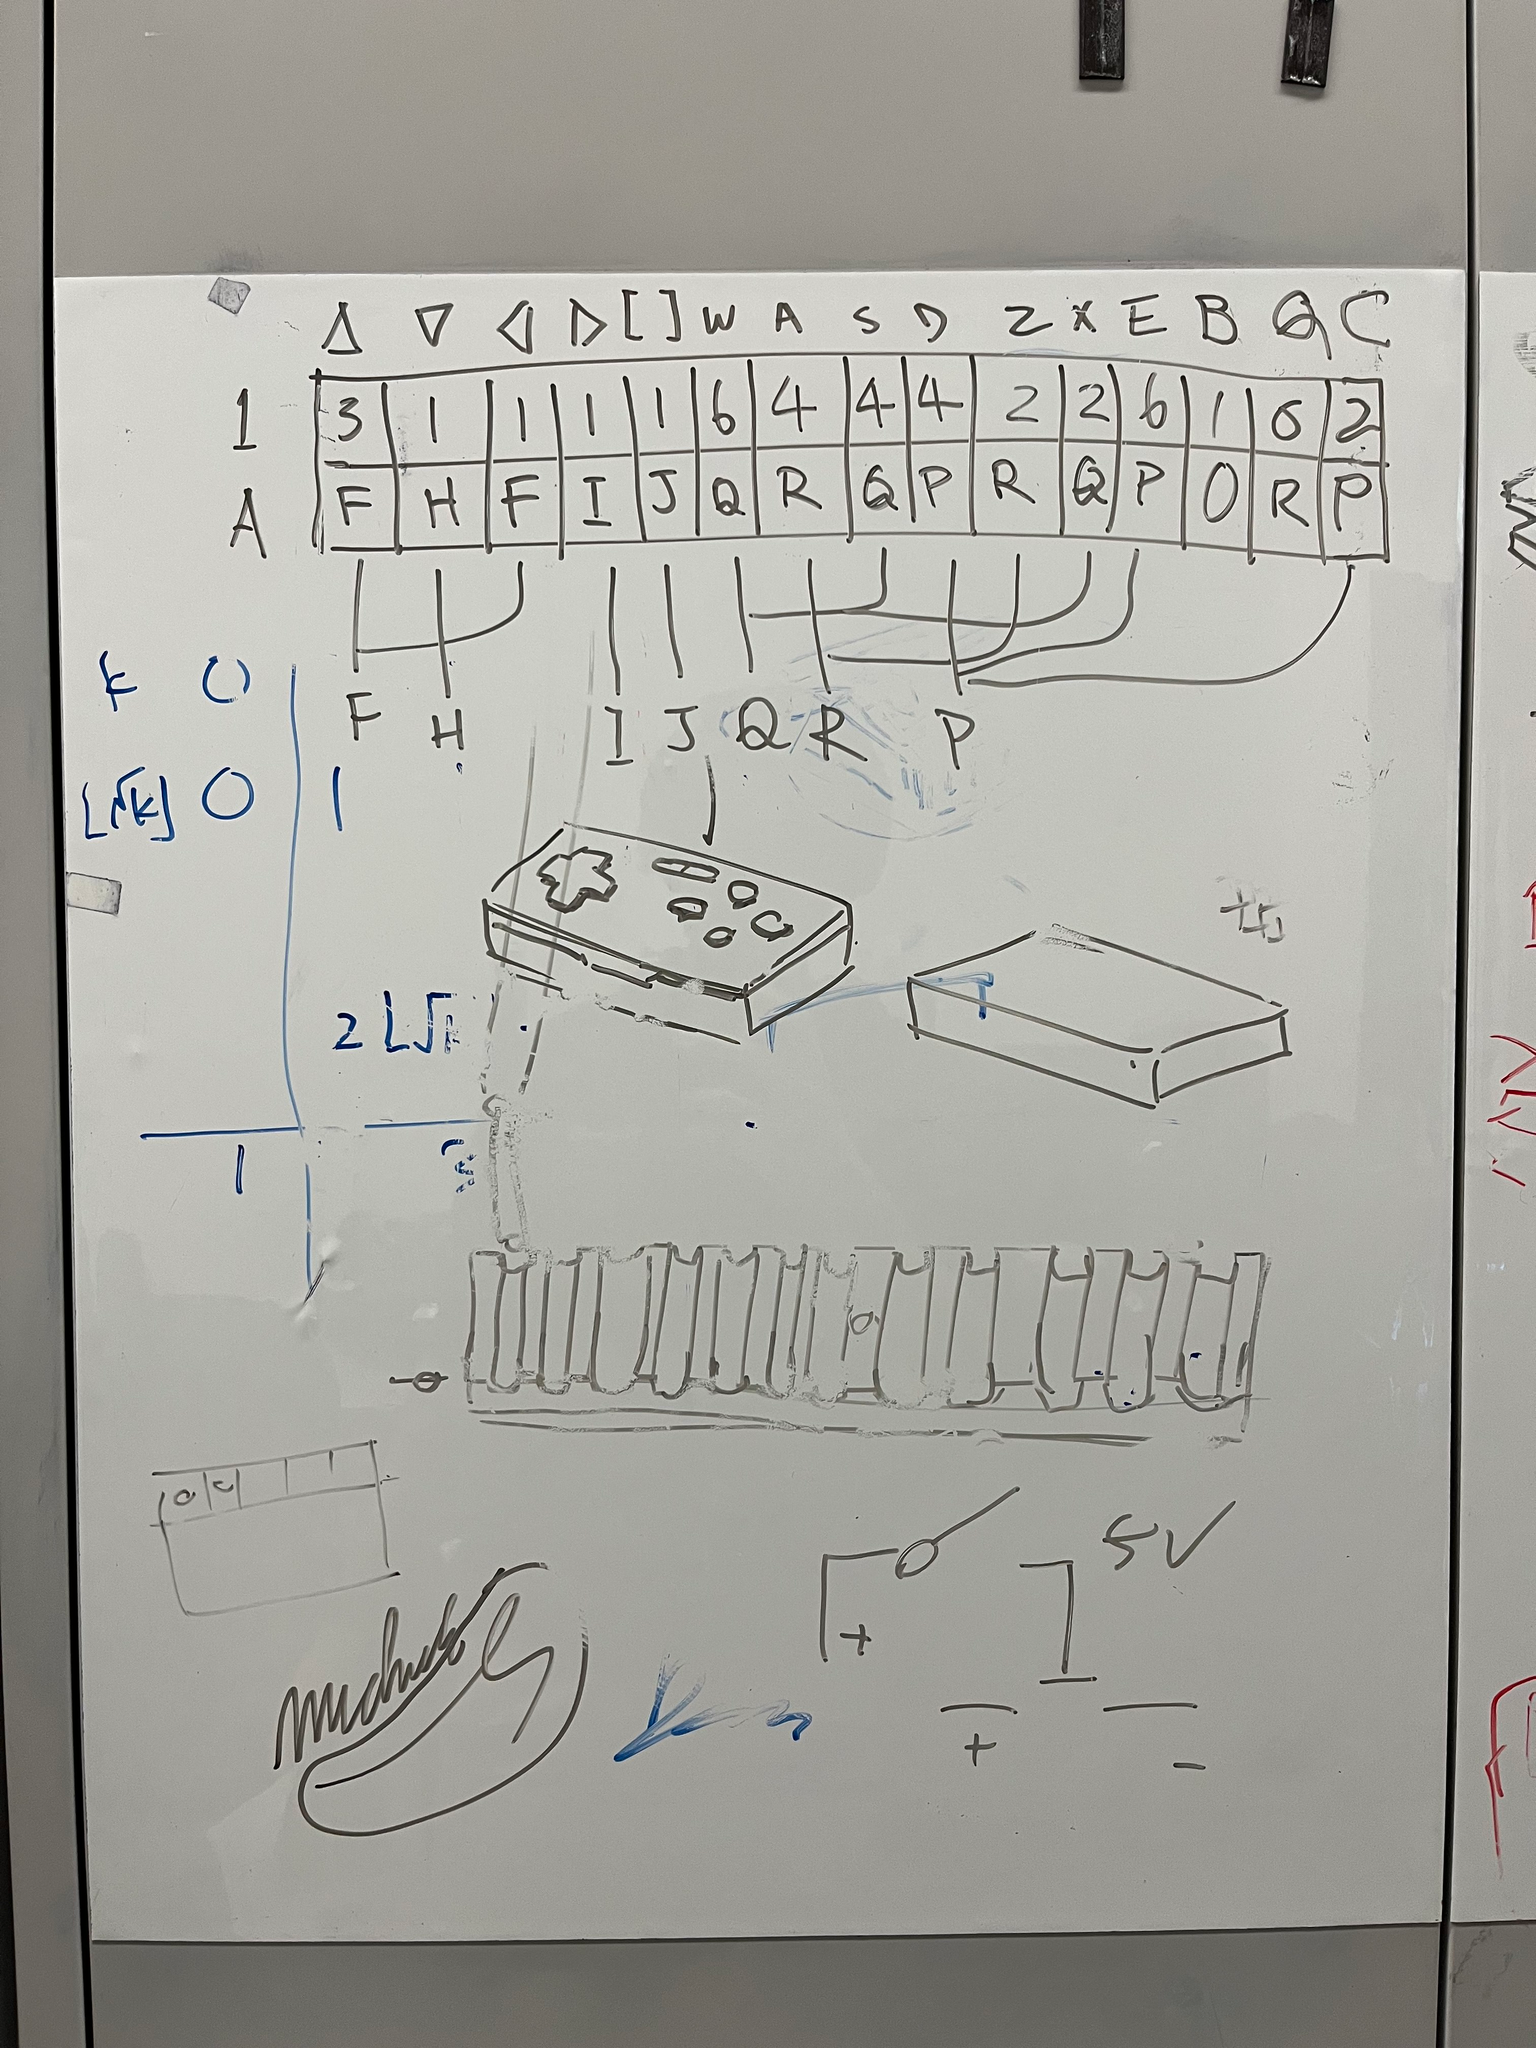 △ ▽ ◁ ▷ [ ] W A S D Z X E B Q C
1 3 1 1 1 1 6 4 4 4 2 2 6 1 6 2
A F H F I J Q R Q P R Q P O R P
F H I J Q R P
k 0
⌊√k⌋ 0 1
2 ⌊√
1
5V
+
+ −